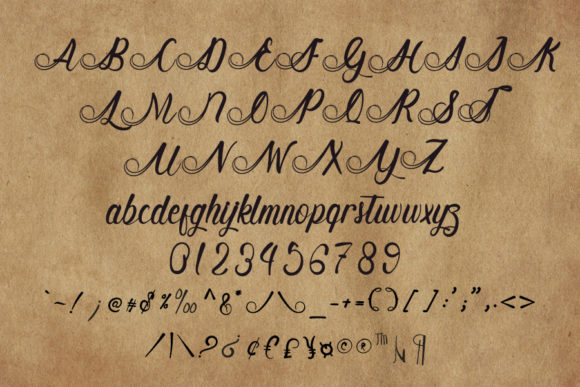 A B C D E F G H I J K
L M N O P Q R S T
U V W X Y Z
abcdefghijklmnopqrstuvwxyz
0123456789
`~!¡@#$%‰^&*()_-+={}[]:';",.<>
/|\?¿¢€£¥¤©®™¶